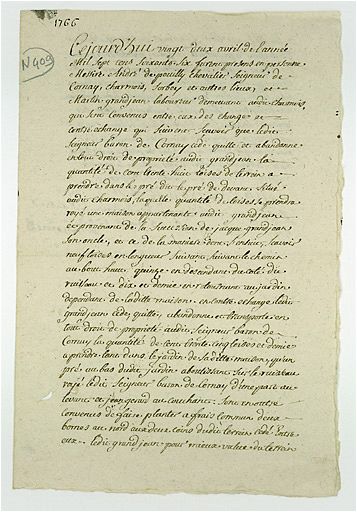 1766
N 409
Cejourd'hui vingt deux avril de l'année
Mil sept cens soixante six furent presens en personne
Messire André de pouilly chevalier Seigneur de
Cornay, charmois, Sorbey et autres lieux, et
Martin grandjean laboureur demeurant audit charmois
qui sont convenus entre eux des echange et
contre echange qui suivent Scavoir que ledit
Seigneur baron de Cornay cede quitte et abandonne
en tout droit de propriété audit grandjean la
quantité de cent trente huit toises de terrein a
prendre dans le pré dit le pré de devant situé
audit charmois laquelle quantité de toises se prendra
une maison appartenante audit grandjean
et provenant de la succession de jacque grandjean
Son oncle, et ce de la maniere
neuf toises en longueur suivant suivant le chemin
au bout haut quinze en descendant du coté du
ruisseau et dix et demie en retournant au jardin
dependant de laditte maison. en contre echange ledit
grandjean cede, quitte, abandonne et transporte en
tout droit de propriété audit Seigneur baron de
Cornay la quantité de cent trente cinq toises et demie
a prendre tant dans le jardin de laditte maison, qu'un
pré au bas dudit jardin aboutissant sur le ruisseau
ledit Seigneur baron de Cornay d'une part au
levant et jean au couchant; Sont en outre
convenus de faire planter a frais commun deux
bornes au nord aux deux coins dudit terrein cedé Entre
eux ledit grandjean pour mieux value du terrein